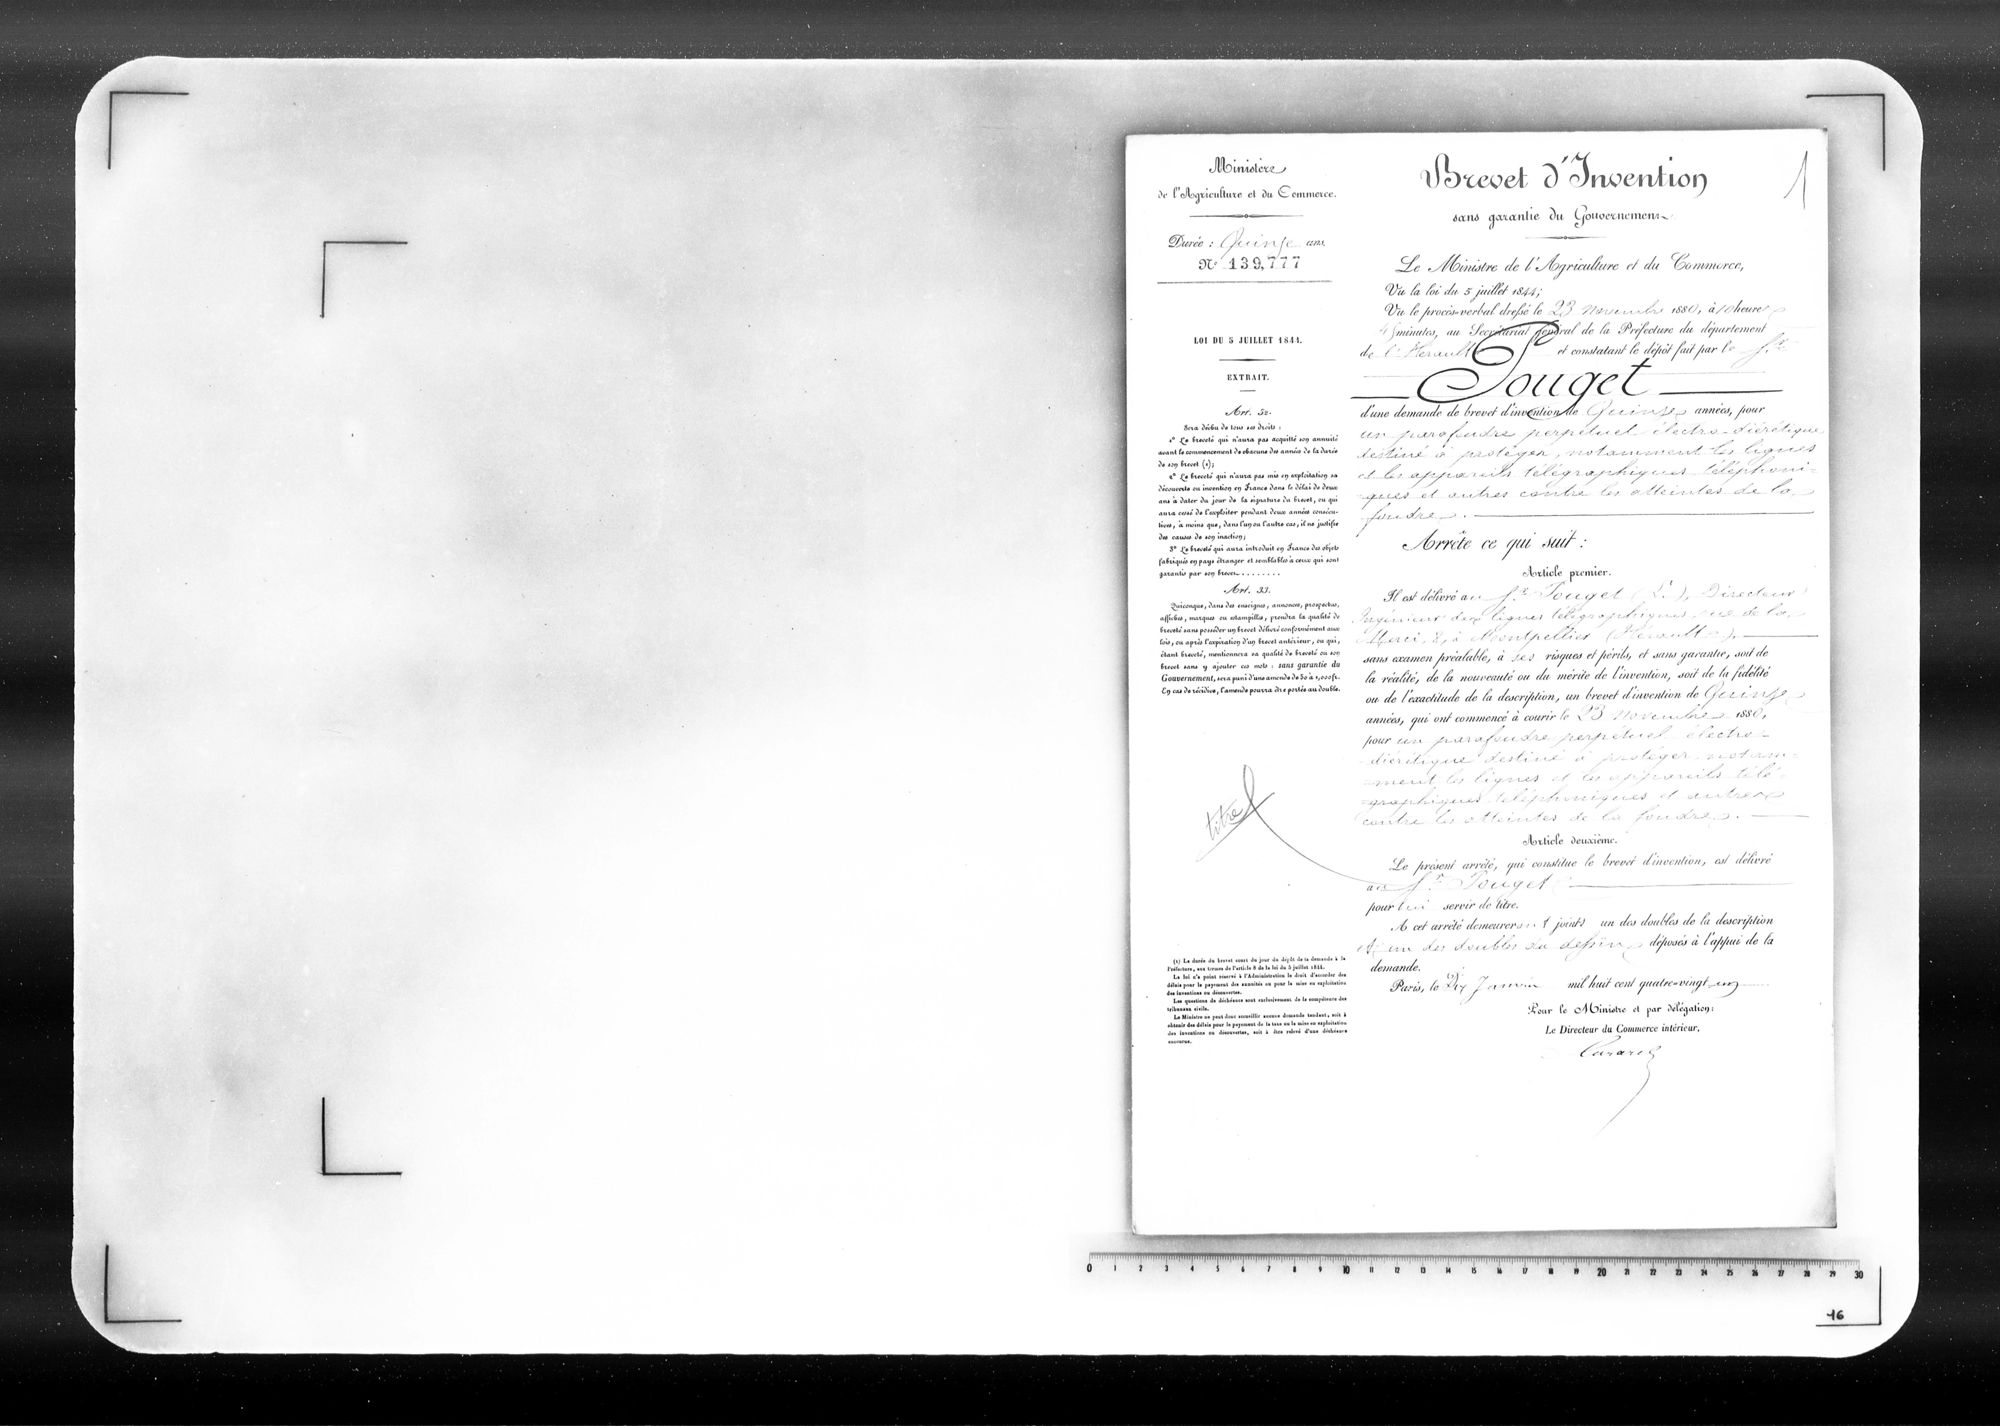 Ministère
de l'Agriculture et du Commerce.
Durée : Quinze ans.
N° 139,777
LOI DU 5 JUILLET 1844.
EXTRAIT.
Art. 32.
Sera déchu de tous ses droits :
1° Le breveté qui n'aura pas acquitté son annuité
avant le commencement de chacune des années de la durée
de son brevet (1);
2° Le breveté qui n'aura pas mis en exploitation sa
découverte ou invention en France dans le délai de deux
ans à dater du jour de la signature du brevet, ou qui
aura cessé de l'exploiter pendant deux années consécu-
tives, à moins que, dans l'un ou l'autre cas, il ne justifie
des causes de son inaction;
3° Le breveté qui aura introduit en France des objets
fabriqués en pays étranger et semblables à ceux qui sont
garantis par son brevet.........
Art. 33.
Quiconque, dans des enseignes, annonces, prospectus,
affiches, marques ou estampilles, prendra la qualité de
breveté sans posséder un brevet délivré conformément aux
lois, ou après l'expiration d'un brevet antérieur, ou qui,
étant breveté, mentionnera sa qualité de breveté ou son
brevet sans y ajouter ces mots : sans garantie du
Gouvernement, sera puni d'une amende de 50 à 1,000 fr.
En cas de récidive, l'amende pourra être portée au double.
titre
(1) La durée du brevet court du jour du dépôt de la demande à la
Préfecture, aux termes de l'article 8 de la loi du 5 juillet 1844.
La loi n'a point réservé à l'Administration le droit d'accorder des
délais pour le payement des annuités ou pour la mise en exploitation
des inventions ou découvertes.
Les questions de déchéance sont exclusivement de la compétence des
tribunaux civils.
Le Ministre ne peut donc accueillir aucune demande tendant, soit à
obtenir des délais pour le payement de la taxe ou la mise en exploitation
des inventions ou découvertes, soit à être relevé d'une déchéance
encourue.
1
Brevet d'Invention
sans garantie du Gouvernement.
Le Ministre de l'Agriculture et du Commerce,
Vu la loi du 5 juillet 1844;
Vu le procès-verbal dressé le 23 novembre 1880, à 10 heures
45 minutes, au Secrétariat général de la Préfecture du département
de l'Hérault et constatant le dépôt fait par le Sr
Pouget
d'une demande de brevet d'invention de Quinze années, pour
un parafoudre perpétuel électro-diérétique
destiné à protéger, notamment les lignes
et les appareils télégraphiques téléphoni-
ques et autres contre les atteintes de la
foudre.
Arrête ce qui suit :
Article premier.
Il est délivré au Sr Pouget (L.), Directeur
Ingénieur des lignes télégraphiques, rue de la
Merci, 8, à Montpellier (Hérault),
sans examen préalable, à ses risques et périls, et sans garantie, soit de
la réalité, de la nouveauté ou du mérite de l'invention, soit de la fidélité
ou de l'exactitude de la description, un brevet d'invention de Quinze
années, qui ont commencé à courir le 23 novembre 1880,
pour un parafoudre perpétuel électro-
diérétique destiné à protéger notam-
ment les lignes et les appareils télé-
graphiques téléphoniques et autres
contre les atteintes de la foudre.
Article deuxième.
Le présent arrêté, qui constitue le brevet d'invention, est délivré
au Sr Pouget
pour lui servir de titre.
A cet arrêté demeureront joints un des doubles de la description
et un des doubles du dessin déposés à l'appui de la
demande.
Paris, le Janvier mil huit cent quatre-vingt-un
Pour le Ministre et par délégation:
Le Directeur du Commerce intérieur,
0 1 2 3 4 5 6 7 8 9 10 11 12 13 14 15 16 17 18 19 20 21 22 23 24 25 26 27 28 29 30
16